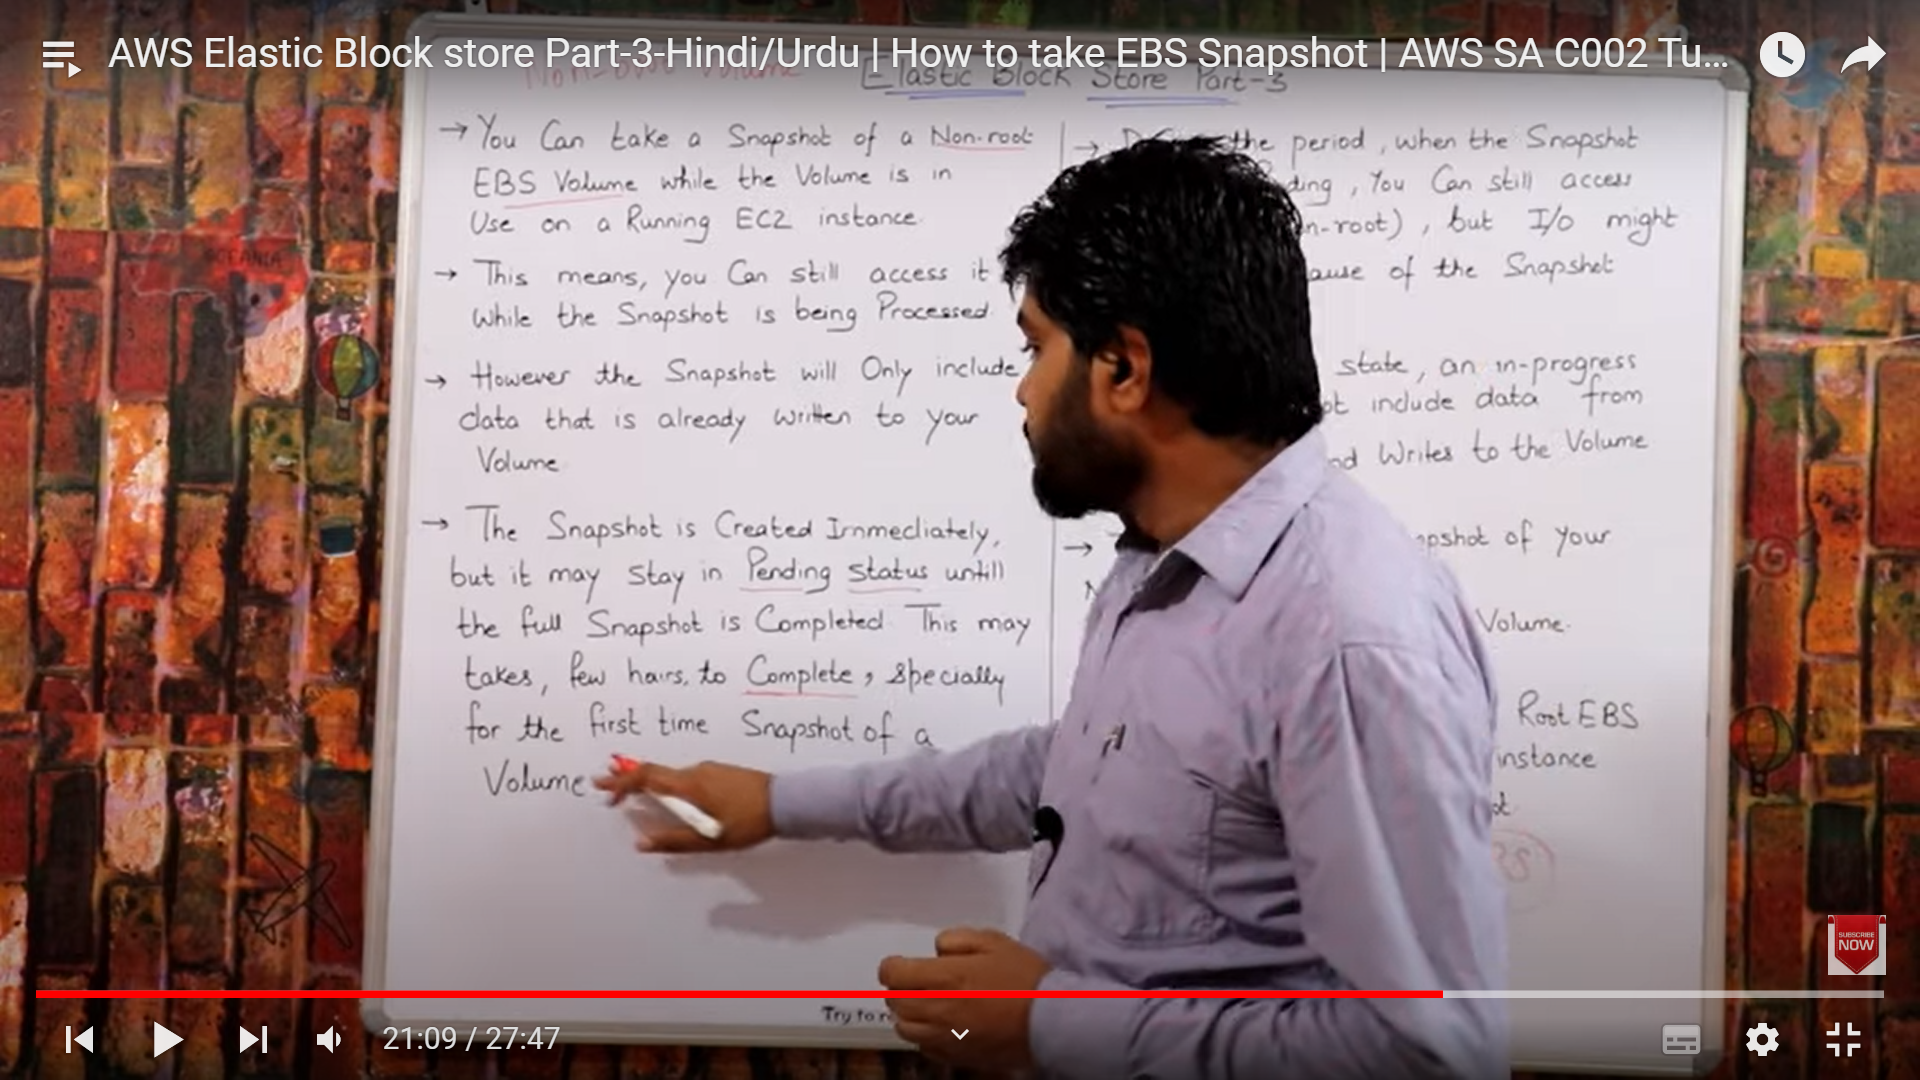 AWS Elastic Block store Part-3-Hindi/Urdu | How to take EBS Snapshot | AWS SA C002 Tu...
Non-root Volume
Elastic Block Store Part-3
→ You Can take a Snapshot of a Non-root
EBS Volume while the Volume is in
Use on a Running EC2 instance
→ This means, you Can still access it
While the Snapshot is being Processed
→ However the Snapshot will Only include
data that is already written to your
Volume
→ The Snapshot is Created Immediately,
but it may stay in Pending status untill
the full Snapshot is Completed This may
takes, few hours, to Complete, specially
for the first time Snapshot of a
Volume
→ the period, when the Snapshot
ding, You Can still access
n-root), but I/o might
ause of the Snapshot
state, an in-progress
ot include data from
nd Writes to the Volume
→ apshot of your
Volume.
Root EBS
instance
ot
BS
Try to
OCEANIA
SUBSCRIBE
NOW
21:09 / 27:47